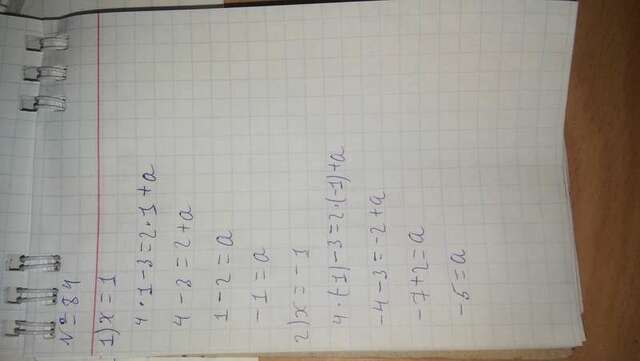 № 84
1) x = 1
4 · 1 - 3 = 2 · 1 + a
4 - 3 = 2 + a
1 - 2 = a
-1 = a
2) x = -1
4 · (-1) - 3 = 2 · (-1) + a
-4 - 3 = -2 + a
-7 + 2 = a
-5 = a